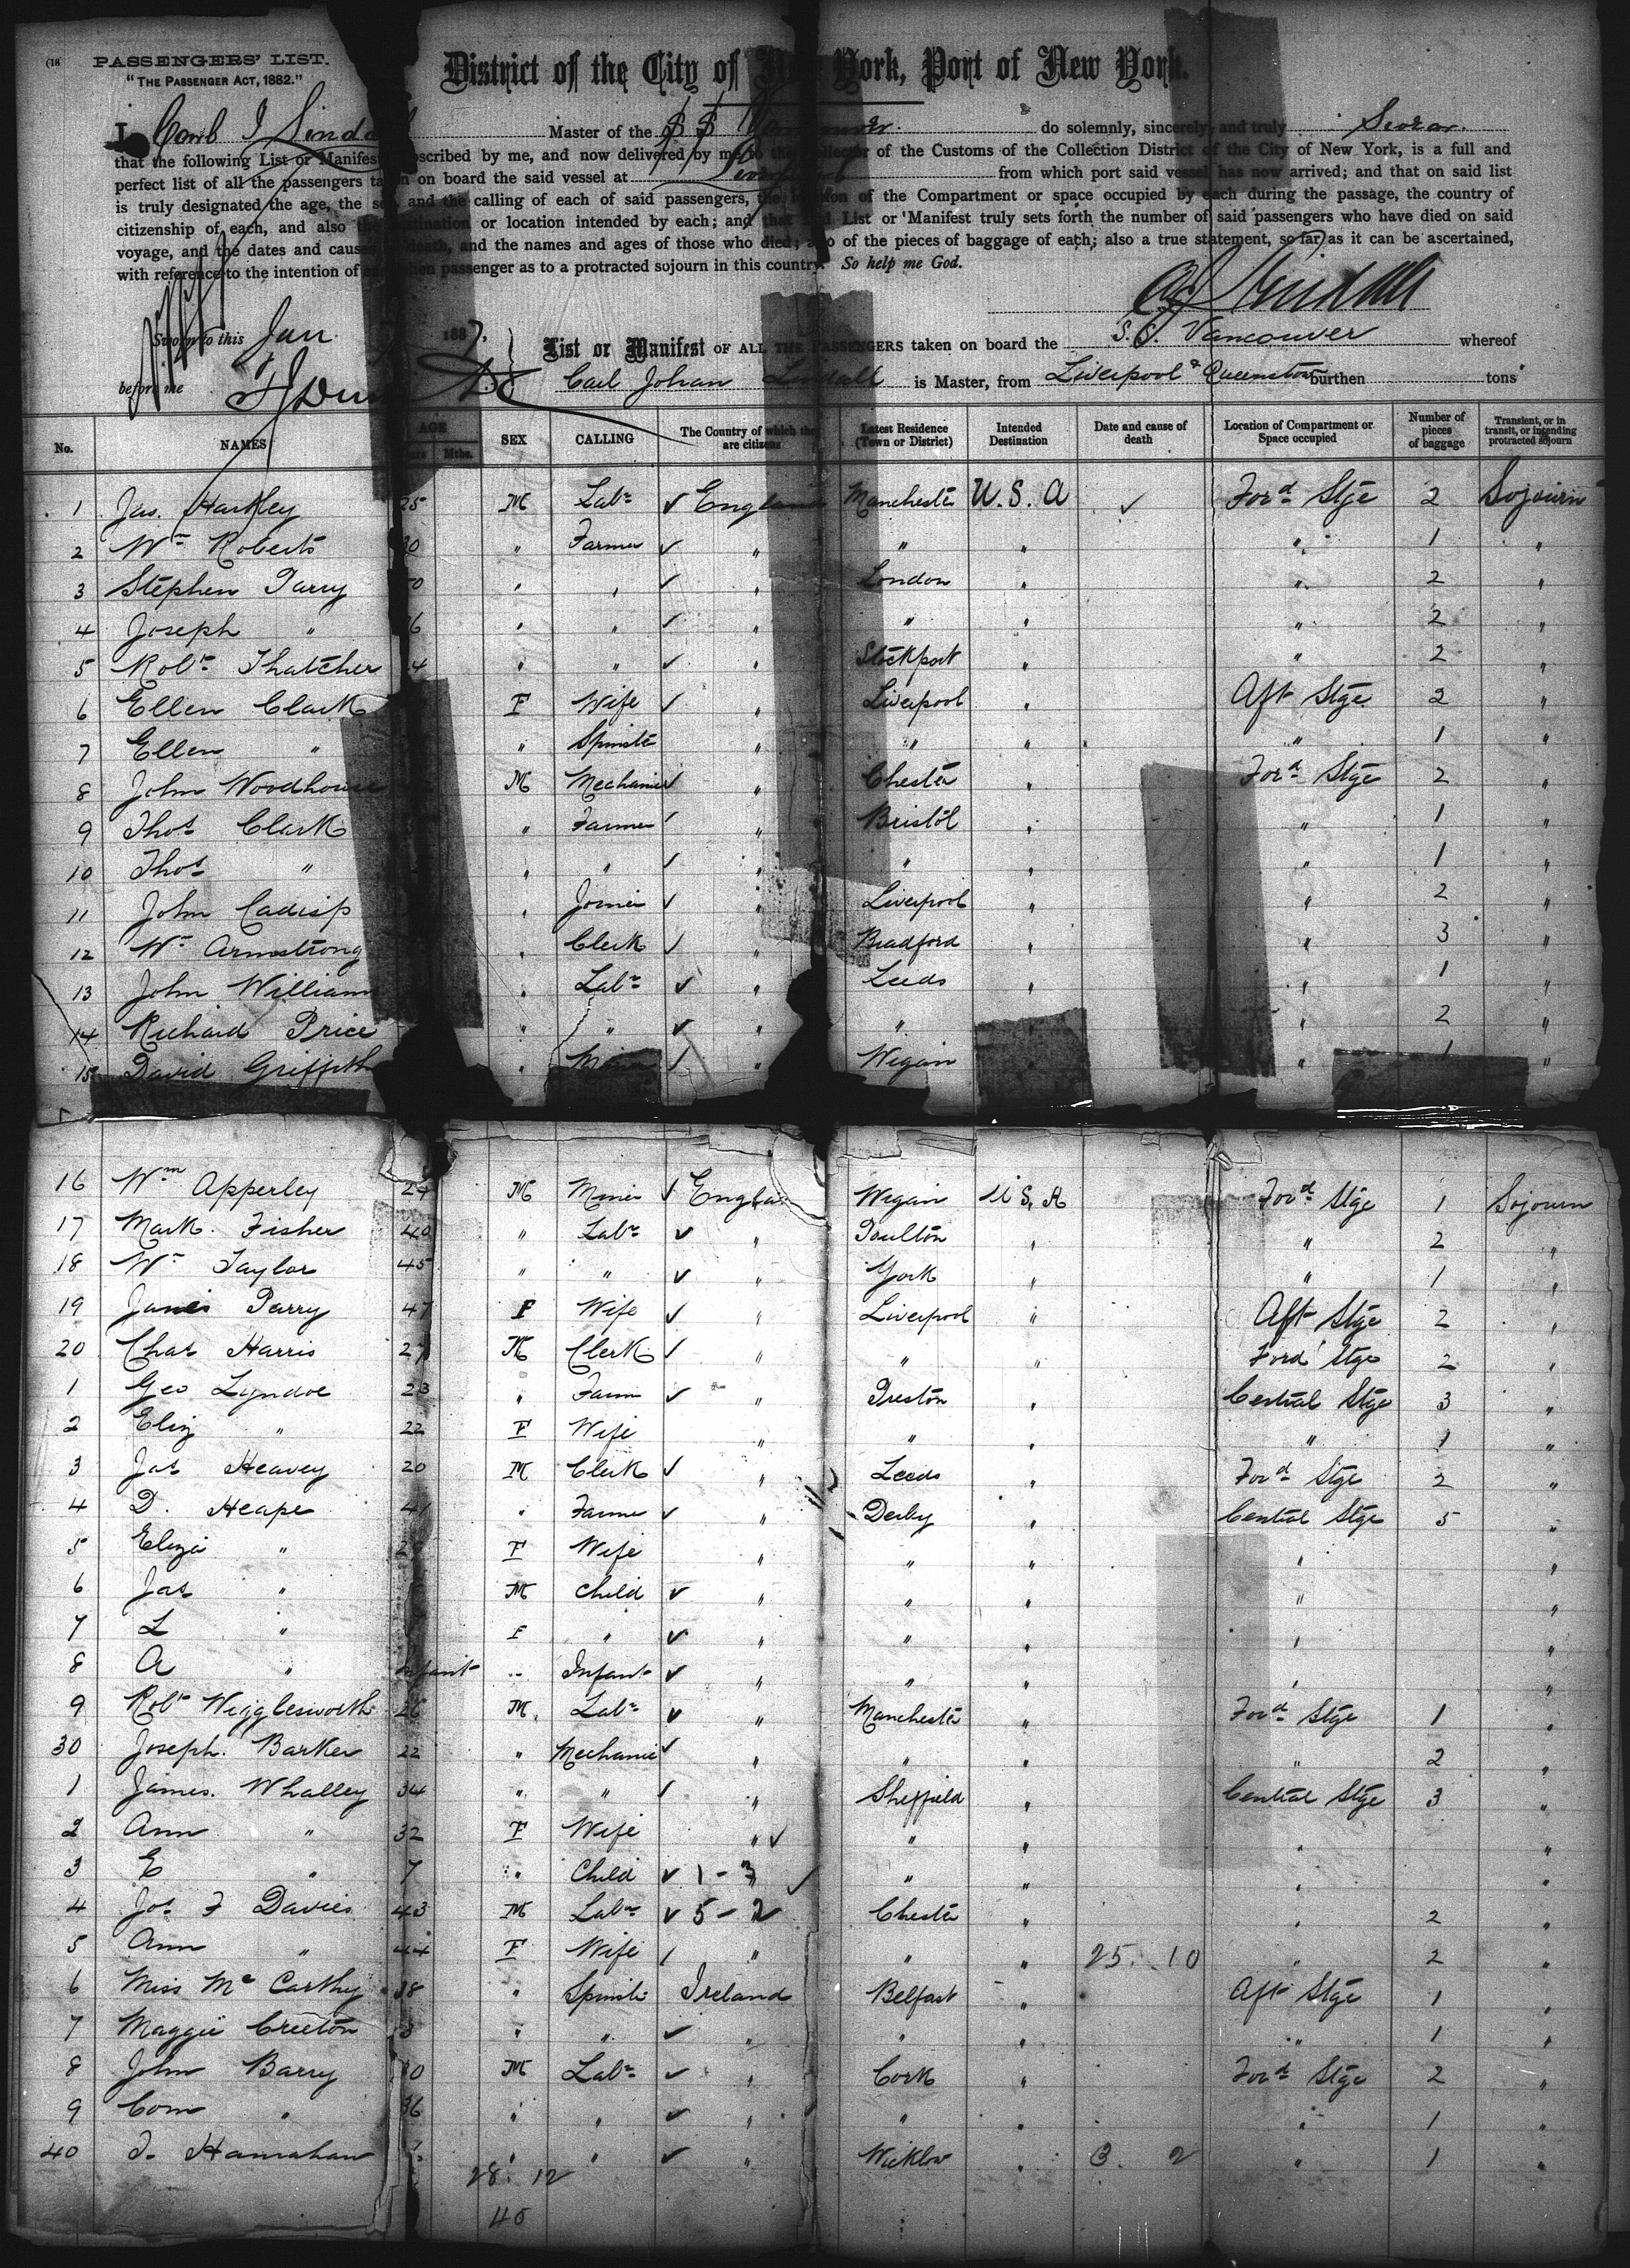 PASSENGERS' LIST.
"THE PASSENGER ACT, 1882."
District of the City of New York, Port of New York.
I, Carl J Linda Master of the S S Vancouver. do solemnly, sincerely, and truly Swear.
that the following List or Manifest subscribed by me, and now delivered by me to the Collector of the Customs of the Collection District of the City of New York, is a full and
perfect list of all the passengers taken on board the said vessel at Liverpool from which port said vessel has now arrived; and that on said list
is truly designated the age, the sex, and the calling of each of said passengers, the location of the Compartment or space occupied by each during the passage, the country of
citizenship of each, and also the destination or location intended by each; and that said List or Manifest truly sets forth the number of said passengers who have died on said
voyage, and the dates and causes of death, and the names and ages of those who died; also of the pieces of baggage of each; also a true statement, so far as it can be ascertained,
with reference to the intention of each alien passenger as to a protracted sojourn in this country. So help me God.
Sworn to this Jan 1887.
before me
List or Manifest OF ALL THE PASSENGERS taken on board the S.S. Vancouver whereof
Carl Johan Lindall is Master, from Liverpool & Queenstown burthen tons
No. NAMES AGE Mths. SEX CALLING The Country of which they are citizens Latest Residence (Town or District) Intended Destination Date and cause of death Location of Compartment or Space occupied Number of pieces of baggage Transient, or in transit, or intending protracted sojourn
1 Jas. Hartley 25 M Labr ✓ England Manchester U.S.A ✓ Ford Stge 2 Sojourn
2 Wm Roberts " Farmer ✓ " " " " 1 "
3 Stephen Parry " " ✓ " London " " 2 "
4 Joseph " " " ✓ " " " " 2 "
5 Robt Thatcher " " ✓ " Stockport " " 2 "
6 Ellen Clark F Wife ✓ " Liverpool " Aft Stge 2 "
7 Ellen " " Spinster " " " " 1 "
8 John Woodhouse M Mechanic ✓ " Chester " Ford Stge 2 "
9 Thos Clark " Farmer ✓ " Bristol " " 1 "
10 Thos " " " ✓ " " " " 1 "
11 John Cadisp " Joiner ✓ " Liverpool " " 2 "
12 Wm Armstrong " Clerk ✓ " Bradford " " 3 "
13 John William " Labr ✓ " Leeds " " 1 "
14 Richard Price " " ✓ " " " " 2 "
15 David Griffith " Miner ✓ " Wigan " 1 "
16 Wm Apperley 24 M Miner ✓ Englan Wigan U S, A Ford Stge 1 Sojourn
17 Mark Fisher 40 " Labr ✓ " Poulton " " 2 "
18 Wm Taylor 45 " " ✓ " York " " 1 "
19 Janes Parry 47 F Wife ✓ " Liverpool " Aft Stge 2 "
20 Chas Harris 27 M Clerk ✓ " " " Ford Stge 2 "
1 Geo Lyndoe 23 " Farm ✓ " Preston " Central Stge 3 "
2 Eliz " 22 F Wife " " " " 1 "
3 Jas Heavey 20 M Clerk ✓ " Leeds " Ford Stge 2 "
4 D. Heape 41 " Farmer ✓ " Derby " Central Stge 5 "
5 Eliza " F Wife " " " " "
6 Jas " M Child ✓ " " " "
7 L " F " ✓ " " " " "
8 A " Infant " Infant ✓ " " " " "
9 Robt Wigglesworth 26 M Labr ✓ " Manchester " Ford Stge 1 "
30 Joseph. Barker 22 " Mechanic ✓ " " " " 2 "
1 James. Whalley 34 " " ✓ " Sheffield " Central Stge 3 "
2 Ann " 32 F Wife " ✓ " " " "
3 E " 7 " Child ✓ 1 - 3 ✓ " " " "
4 Jos F Davies 43 M Labr ✓ 5 - 2 Chester " " 2 "
5 Ann " 44 F Wife / " " " 25. 10 " 2 "
6 Miss McCarthy 38 " Spinster Ireland Belfast " Aft Stge 1 "
7 Maggie Creeton " " ✓ " " " " 1 "
8 John Barry 30 M Labr ✓ " Cork " Ford Stge 2 "
9 Corn " 36 " " ✓ " " " " 1 "
40 Hanrahan " " ✓ " Wicklow " 3. 2 " 1 "
28. 12
40